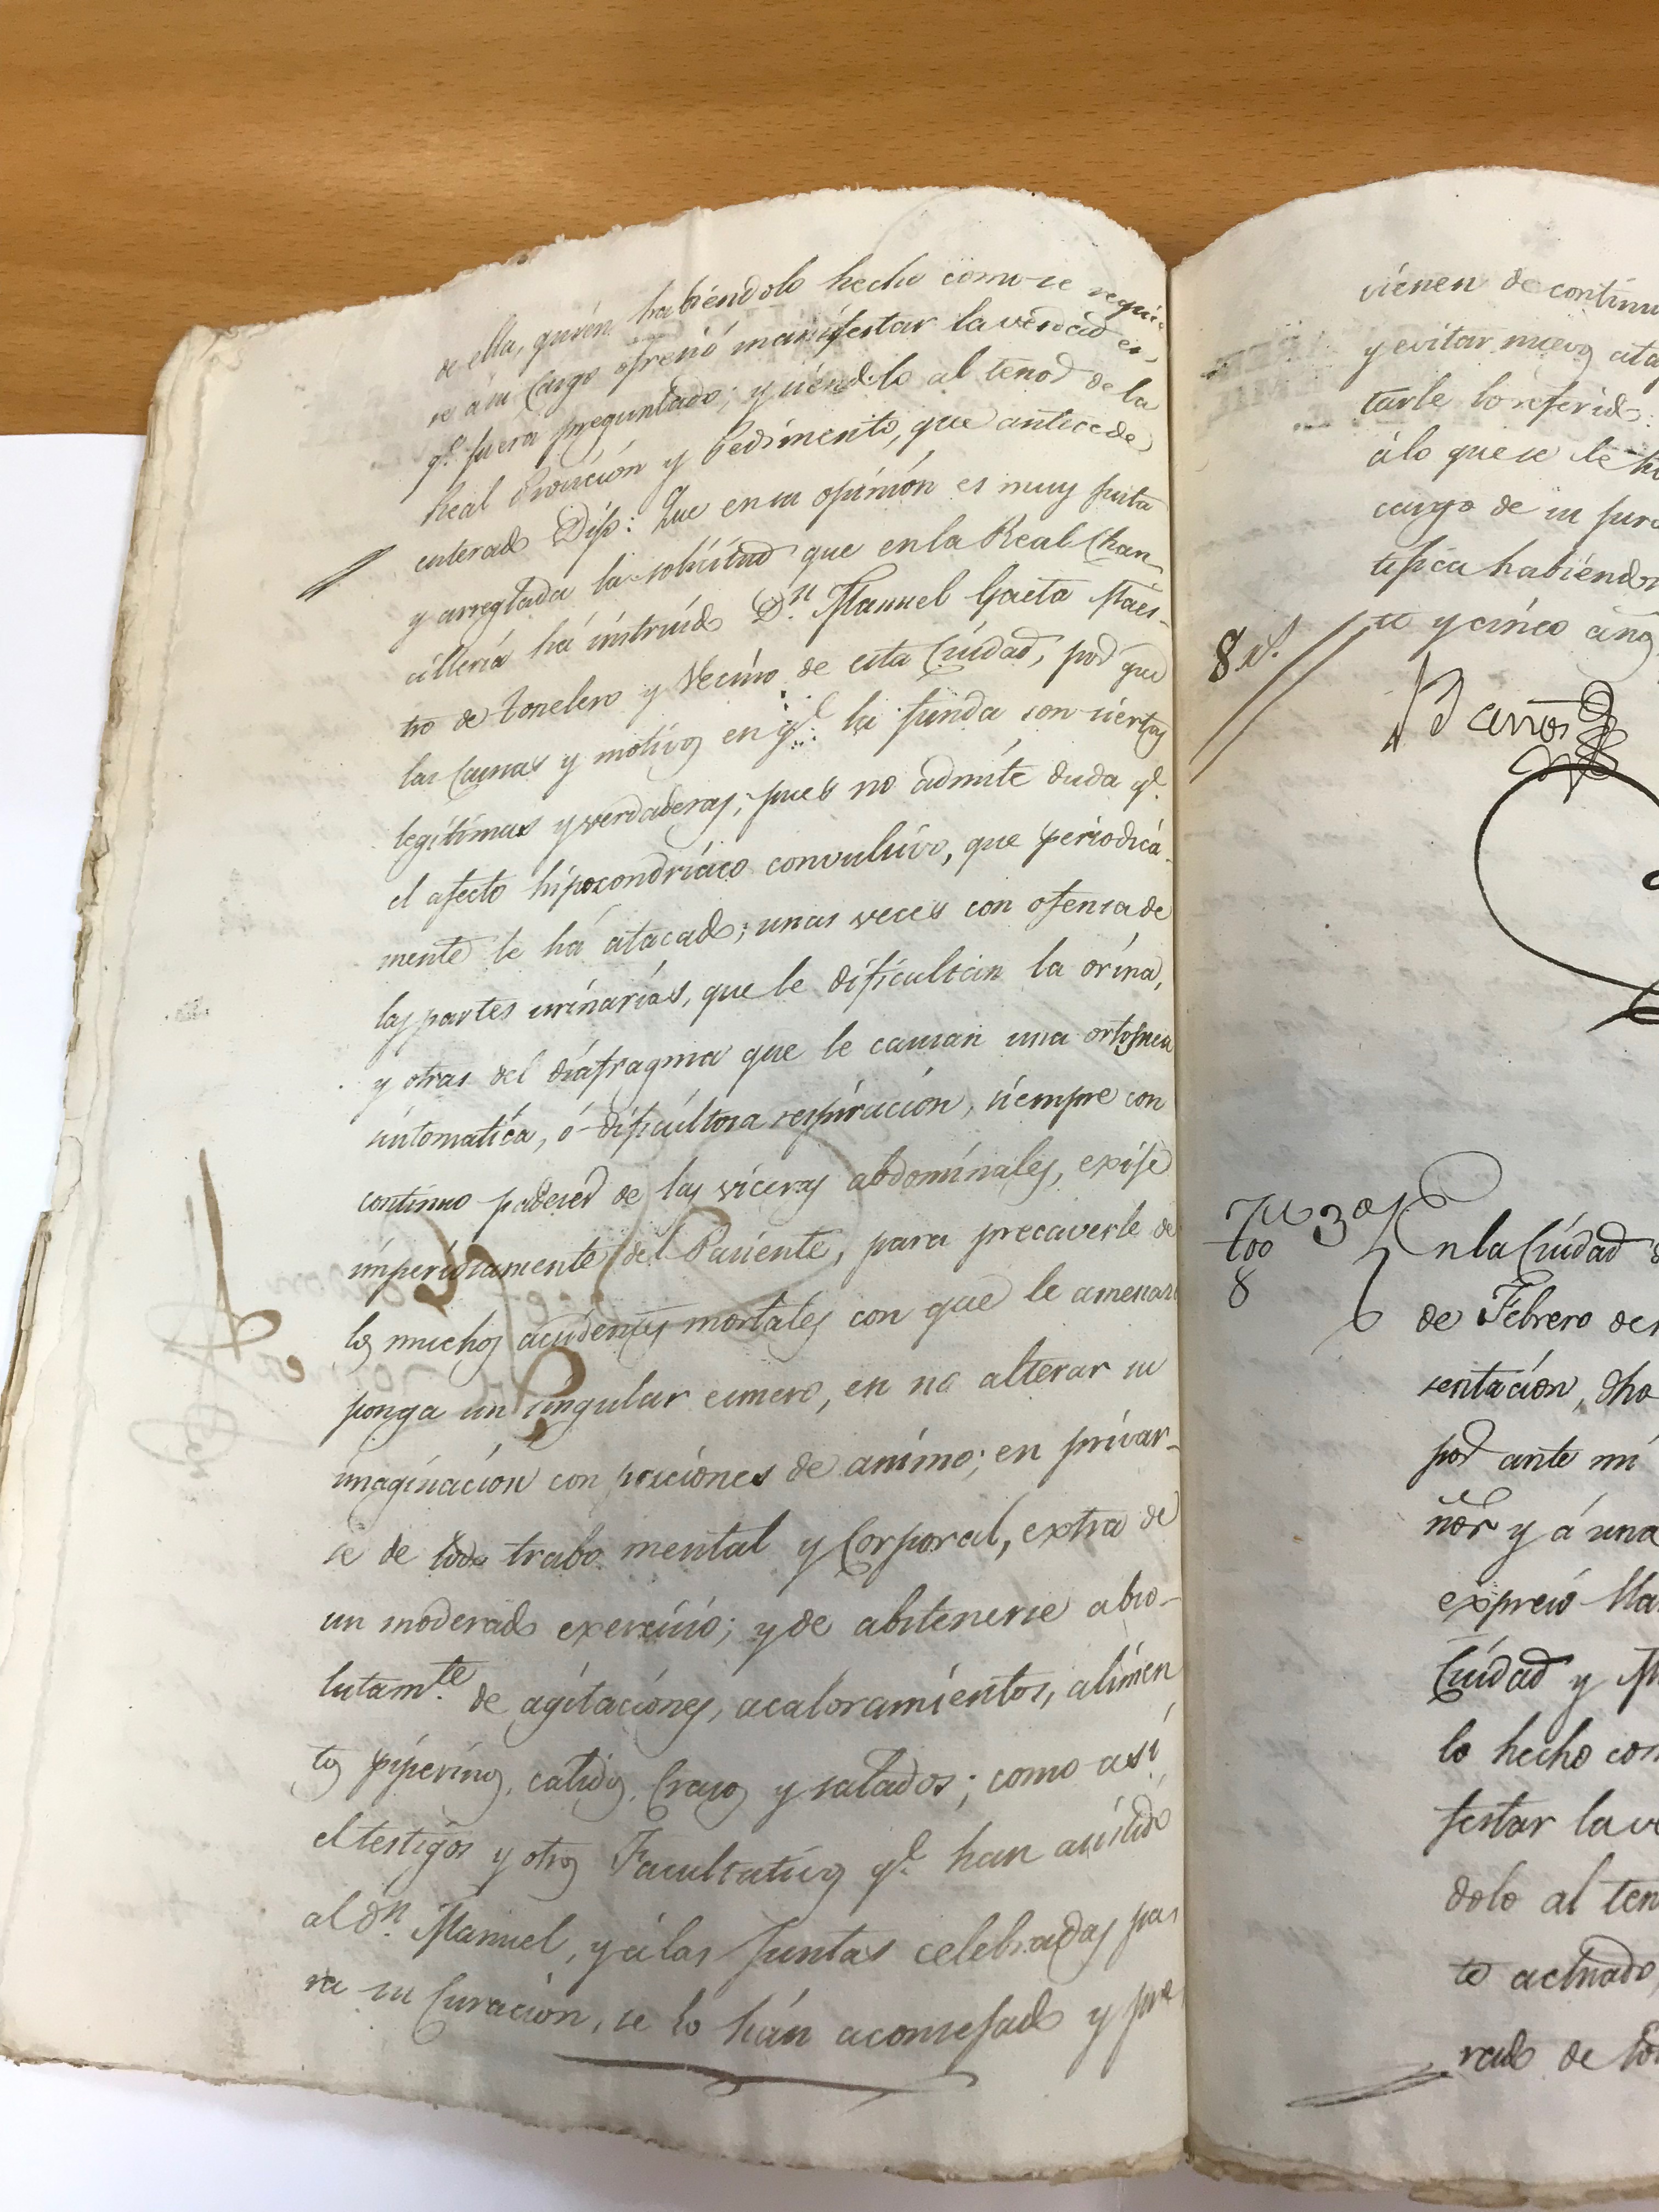 de ella, quién habiéndolo hecho como se requie
re á su Cargo ofreció manifestar la verdad en
q.e fuera preguntado; y siéndolo al tenor de la
Real Provición y Pedimento, que antecede
enterado Dijo: Que en su opinión es muy justa
y arreglada la solicitud que en la Real Chan-
cilleria há instruido D.n Manuel Gaeta Maes-
tro de tonelero y Vecino de esta Ciudad, por que
las Causas y motivos en q.e la funda son ciertas
legitimas y verdaderas; pues no admite duda q.e
el afecto hipocondriaco convulsivo, que periodica-
mente le há atacado; unas veces con ofensa de
las partes urinarias, que le dificultan la orina,
y otras del diafragma que le causan una ortopnea
sintomatica, ó dificultosa respiración, siempre con
continuo padecer de las viceras abdominales, exije
imperiosamente del Paciente, para precaverle de
los muchos accidentes mortales con que le amenasa
ponga un singular esmero, en no alterar su
imaginación con paciones de animo; en privar-
se de todo trabo mental y Corporal, extra de
un moderado exercicio; y de abstenerse abso-
lutam.te de agitaciones, acaloramientos, alimen
tos piperinos, calidos, Crasos y salados; como así
el testigos y otros Facultativos q.e han asistido
al D.n Manuel, y á las Juntas celebradas pa
ra su Curación, se lo hán aconsejado y pre
vienen de continu
y evitar nuevos ata
tarle lo referido.
á lo que se le h
cargo de su jura
tifica habiendo
ta y cinco años
8 r.s
Barrios
T.o 3.o En la Ciudad d
de Febrero de
8
sentación, dho
por ante mi
ñor y á una
expresó lla
Ciudad y M
lo hecho com
festar la ve
dolo al ten
te actuado,
rado de to